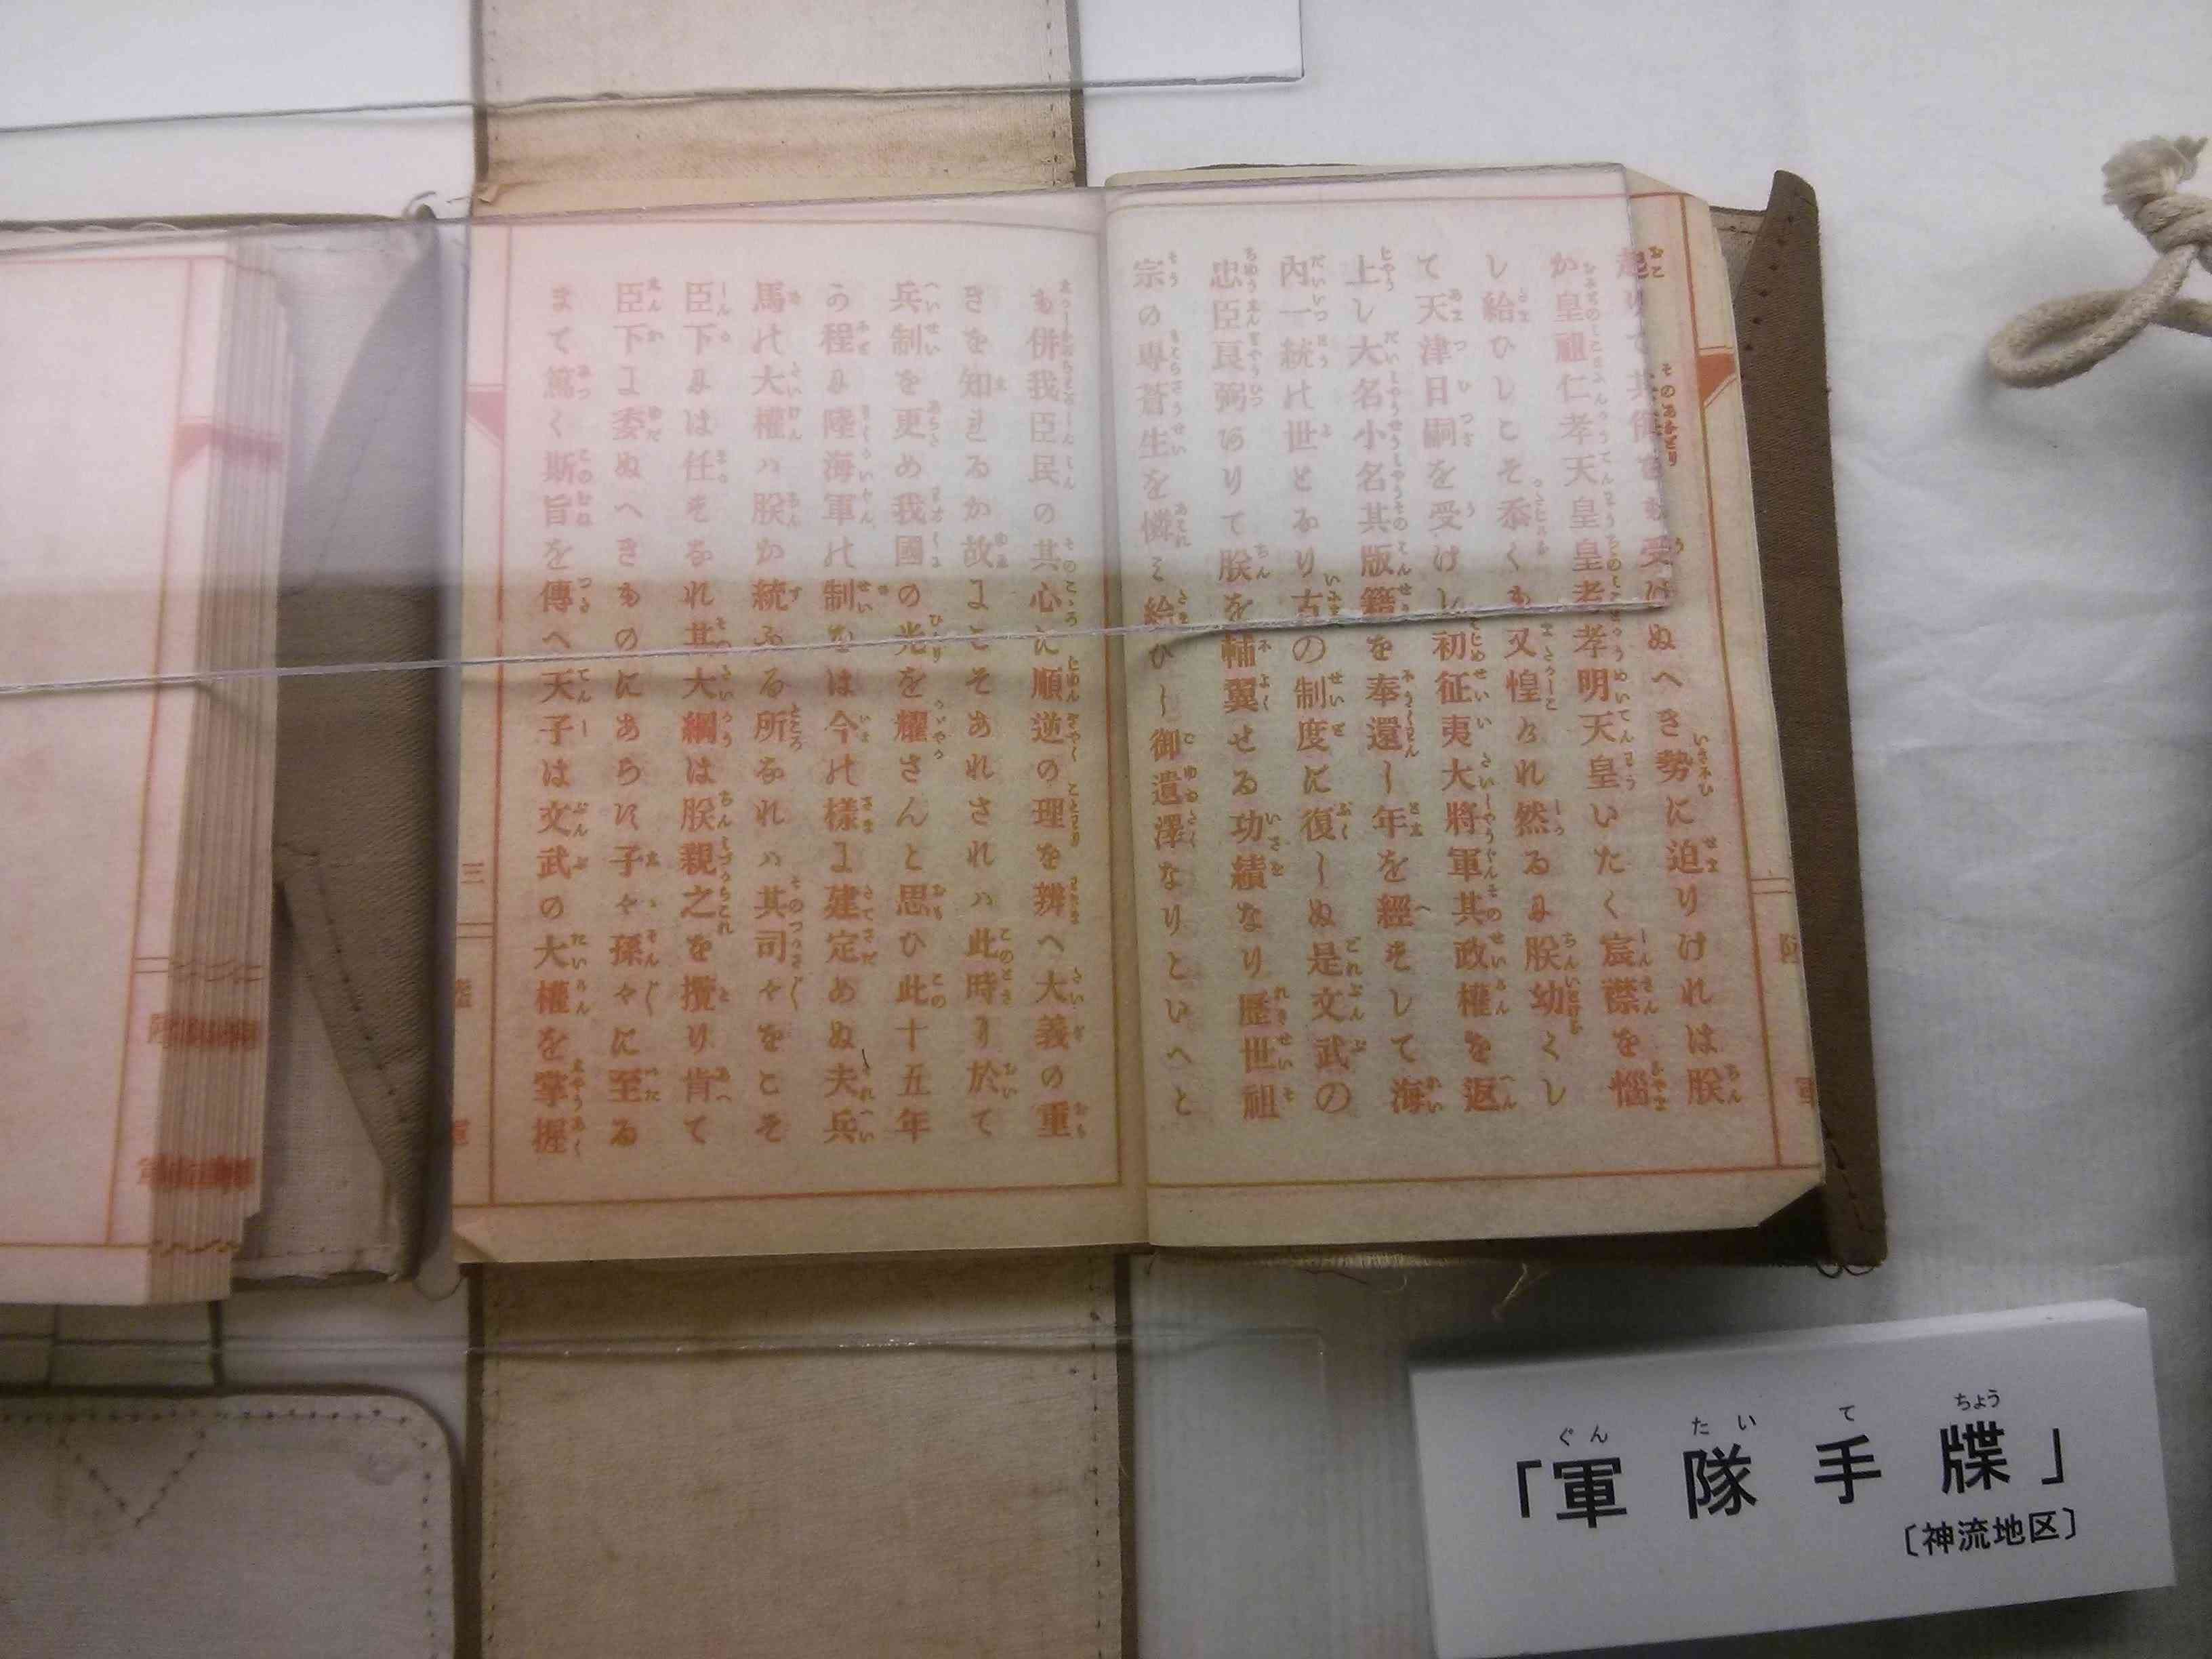 起りて其侮をも受けぬへき勢に迫りけれは朕
か皇祖仁孝天皇皇考孝明天皇いたく宸襟を惱
し給ひしこそ忝くも又惶けれ然るに朕幼くし
て天津日嗣を受けし初征夷大將軍其政權を返
上し大名小名其版籍を奉還し年を經すして海
內一統の世となり古の制度に復しぬ是文武の
忠臣良弼ありて朕を輔翼せる功績なり歷世祖
宗の專蒼生を憐み給ひし御遺澤なりといへと
も併我臣民の其心に順逆の理を辨へ大義の重
きを知れるか故にこそあれされハ此時に於て
兵制を更め我國の光を耀さんと思ひ此十五年
の程に陸海軍の制をは今の樣に建定めぬ夫兵
馬の大權ハ朕か統ふる所なれハ其司々をこそ
臣下には任すなれ其大綱は朕親之を攬り肯て
臣下に委ぬへきものにあらす子々孫々に至る
まて篤く斯旨を傳へ天子は文武の大權を掌握
三
「軍隊手牒」
ぐん たい て ちょう
〔神流地区〕